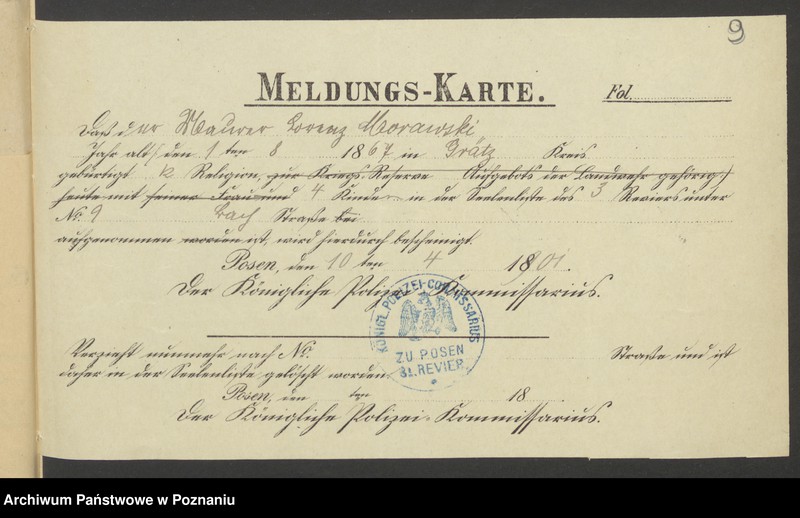 9
MELDUNGS-KARTE.
Fol.
Daß der Maurer Lorenz Morawski
Jahr alt, den 1 ten 8 1867 in Grätz Kreis
gebürtigt k Religion, zur Kriegs-Reserve Aufgebots der Landwehr gehörig,
heute mit seiner Frau und 4 Kinder in der Seelenliste des 3 Reviers unter
No. 9 Bach Straße bei
aufgenommen worden ist, wird hierdurch bescheinigt.
Posen, den 10 ten 4 1801.
Der Königliche Polizei-Kommissarius.
KÖNIGL. POLIZEI-COMMISSARIUS
ZU POSEN
3. REVIER.
Verzieht nunmehr nach No. Straße und ist
daher in der Seelenliste gelöscht worden.
Posen, den ten 18
Der Königliche Polizei-Kommissarius.
Archiwum Państwowe w Poznaniu